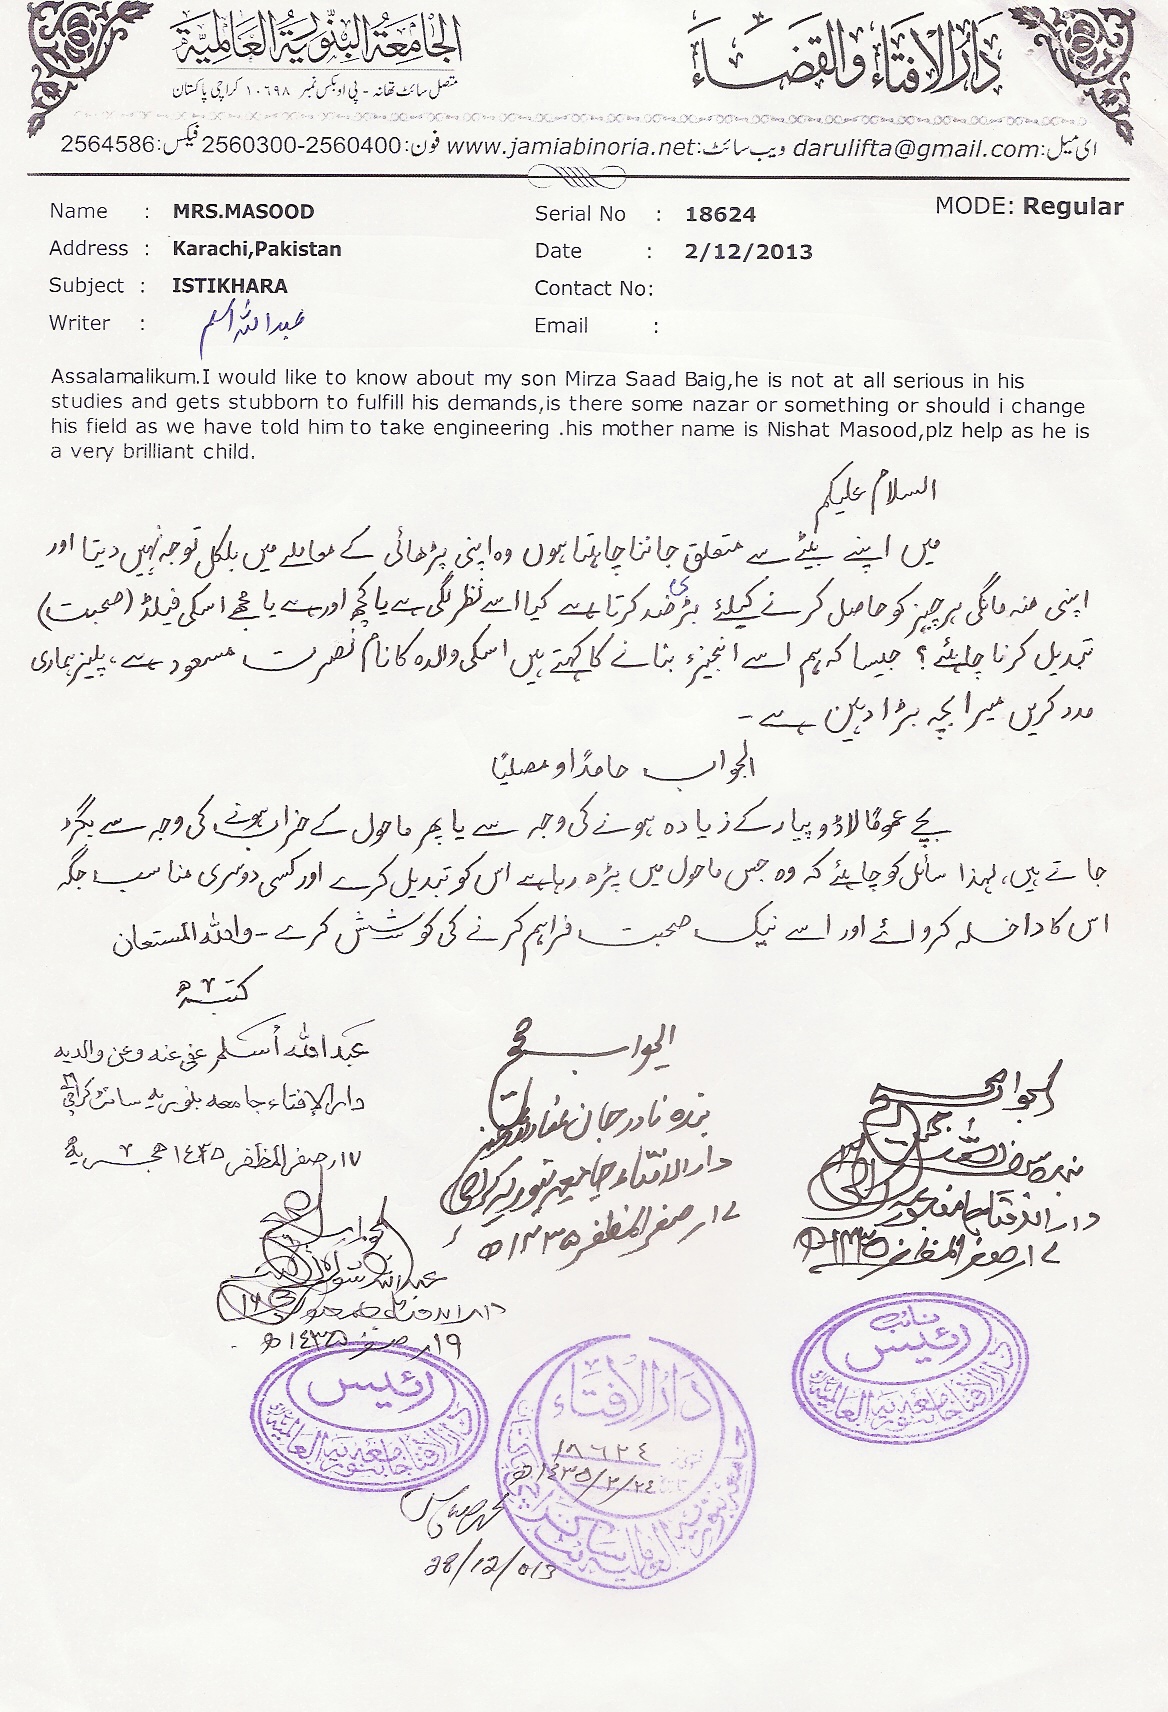 دارُ الافتاء والقضاء
الجامعۃ البنوریۃ العالمیۃ
متصل سائٹ تھانہ - پی او بکس نمبر ۱۰۶۹۸ کراچی پاکستان
ای میل:darulifta@gmail.com ویب سائٹ:www.jamiabinoria.net فون:2560300-2560400 فیکس:2564586
Name : MRS.MASOOD Serial No : 18624 MODE: Regular
Address : Karachi,Pakistan Date : 2/12/2013
Subject : ISTIKHARA Contact No:
Writer : عبداللہ اسلم Email :
Assalamalikum.I would like to know about my son Mirza Saad Baig,he is not at all serious in his
studies and gets stubborn to fulfill his demands,is there some nazar or something or should i change
his field as we have told him to take engineering .his mother name is Nishat Masood,plz help as he is
a very brilliant child.
السلام علیکم
میں اپنے بیٹے سے متعلق جاننا چاہتا ہوں وہ اپنی پڑھائی کے معاملے میں بلکل توجہ نہیں دیتا اور
اپنی منہ مانگی ہر چیز کو حاصل کرنے کیلئے بڑی ضد کرتا ہے کیا اسے نظر لگی ہے یا کچھ اور ہے یا مجھے اسکی فیلڈ (صحبت)
تبدیل کرنا چاہئے؟ جیسا کہ ہم اسے انجینئر بنانے کا کہتے ہیں اسکی والدہ کا نام نصرت مسعود ہے، پلیز ہماری
مدد کریں میرا بچہ بڑا ذہین ہے ۔
الجواب حامدًا و مصلیًا
بچے عمومًا لاڈ و پیار کے زیادہ ہونے کی وجہ سے یا پھر ماحول کے خراب ہونے کی وجہ سے بگڑ
جاتے ہیں، لہذا سائل کو چاہئے کہ وہ جس ماحول میں پڑھ رہا ہے اس کو تبدیل کرے اور کسی دوسری مناسب جگہ
اس کا داخلہ کروائے اور اسے نیک صحبت فراہم کرنے کی کوشش کرے ۔ واللہ المستعان
کتبہ
عبداللہ أسلم عفی عنہ وعن والدیہ
دارالافتاء جامعہ بنوریہ سائٹ کراچی
۱۷ صفر المظفر ۱۴۳۵ ھجریہ
الجواب صحیح
بندہ نادر جان
دارالافتاء جامعہ بنوریہ کراچی
۱۷ صفر المظفر ۱۴۳۵ھ
الجواب صحیح
دارالافتاء جامعہ بنوریہ
۱۷ صفر المظفر ۱۴۳۵ھ
الجواب صحیح
دارالافتاء جامعہ بنوریہ
۱۹ صفر ۱۴۳۵ھ
نائب رئیس
دارالافتاء جامعہ بنوریہ العالمیہ
رئیس
دارالافتاء جامعہ بنوریہ العالمیہ
دارُ الافتاء
۱۸۶۲۴
۱۴۳۵/۲/۲۴ھ
28/12/013